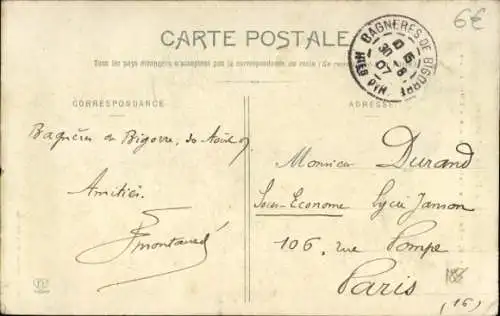 6€
CARTE POSTALE
Tous les pays étrangers n'acceptent pas la correspondance au recto
BAGNERES-DE-BIGORRE
30 -8
07
HTES PYR.
CORRESPONDANCE
ADRESSE
Bagnères de Bigorre, 30 Août 07
Amitiés.
Monsieur Durand
Sous-Econome Lycée Janson
106, rue Pompe
Paris
(16)